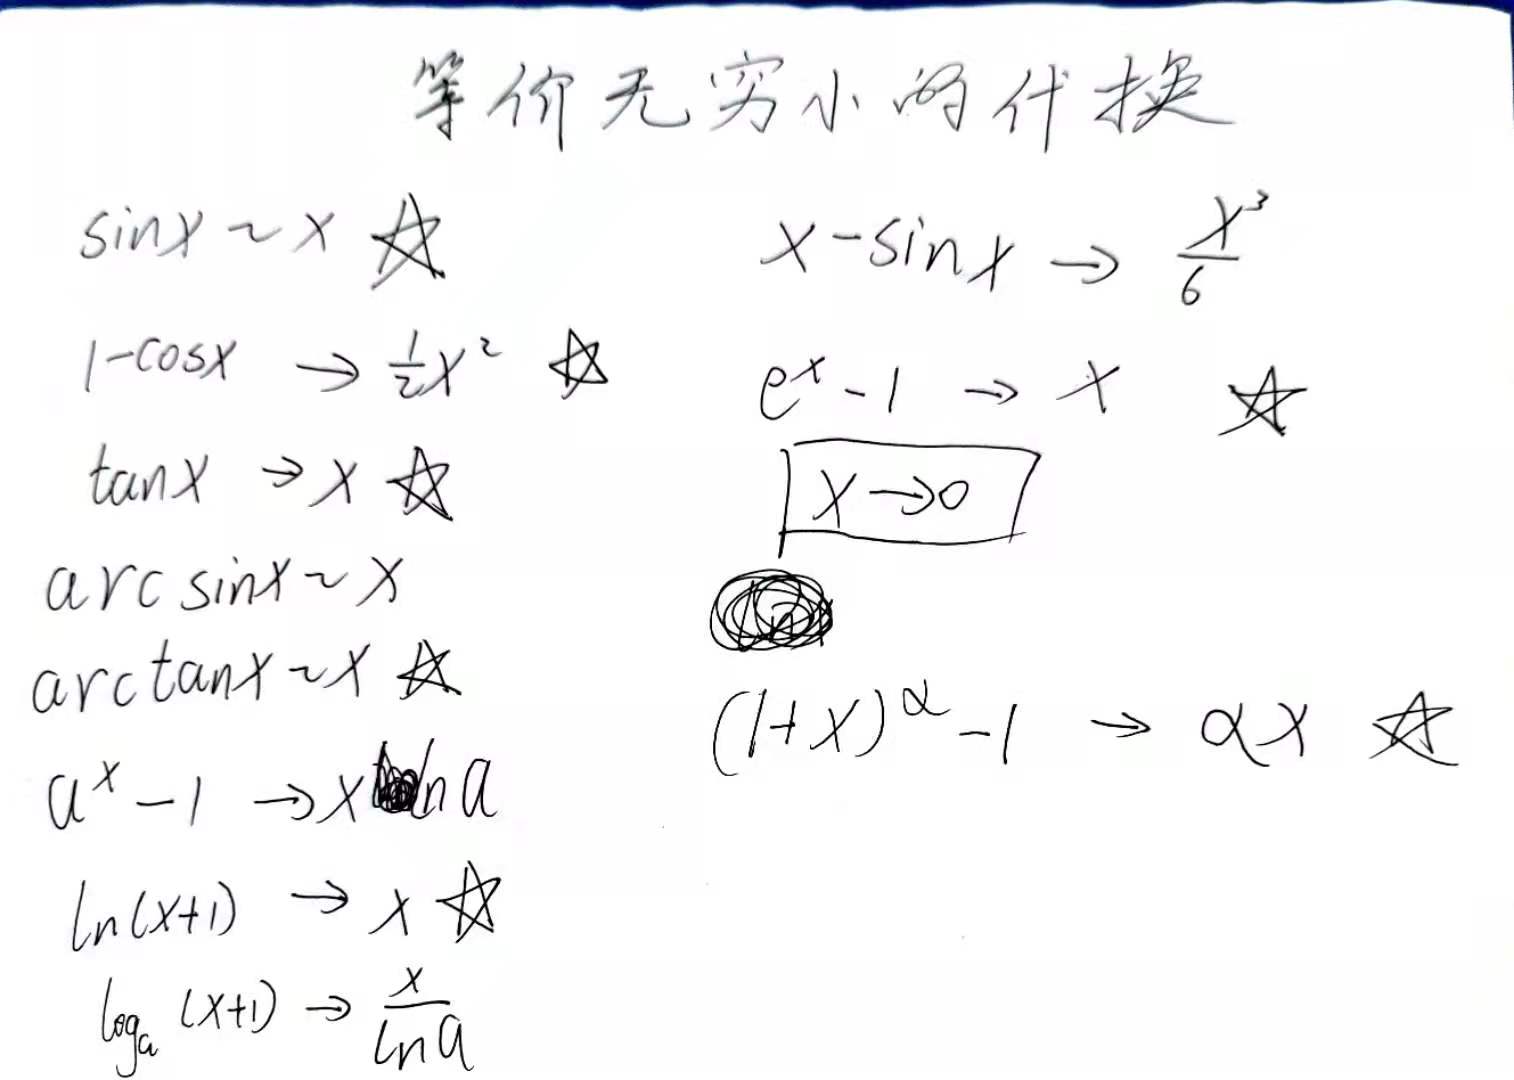 等价无穷小的代换
sinx ~ x ☆
1-cosx → ½x² ☆
tanx → x ☆
arcsinx ~ x
arctanx ~ x ☆
aˣ - 1 → x ln a
ln(x+1) → x ☆
logₐ(x+1) → x/ln a
x - sinx → x³/6
eˣ - 1 → x ☆
x → 0
(1+x)^α - 1 → αx ☆